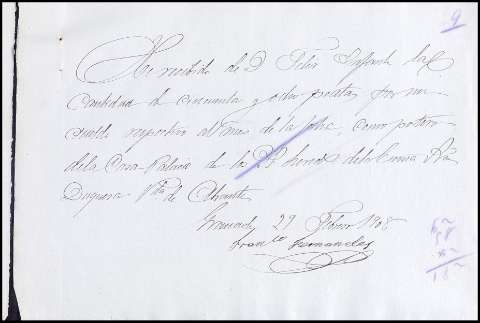 9
He recibido de D. Felix Infante la
cantidad de cincuenta y ocho pesetas por mi
sueldo respectivo al mes de la fcha, como portero
de la Casa Palacio de los herederos de la Excma Sra
Duquesa Vda de Abrantes
Granada 29 Febrero 1908
Franco Fernandez